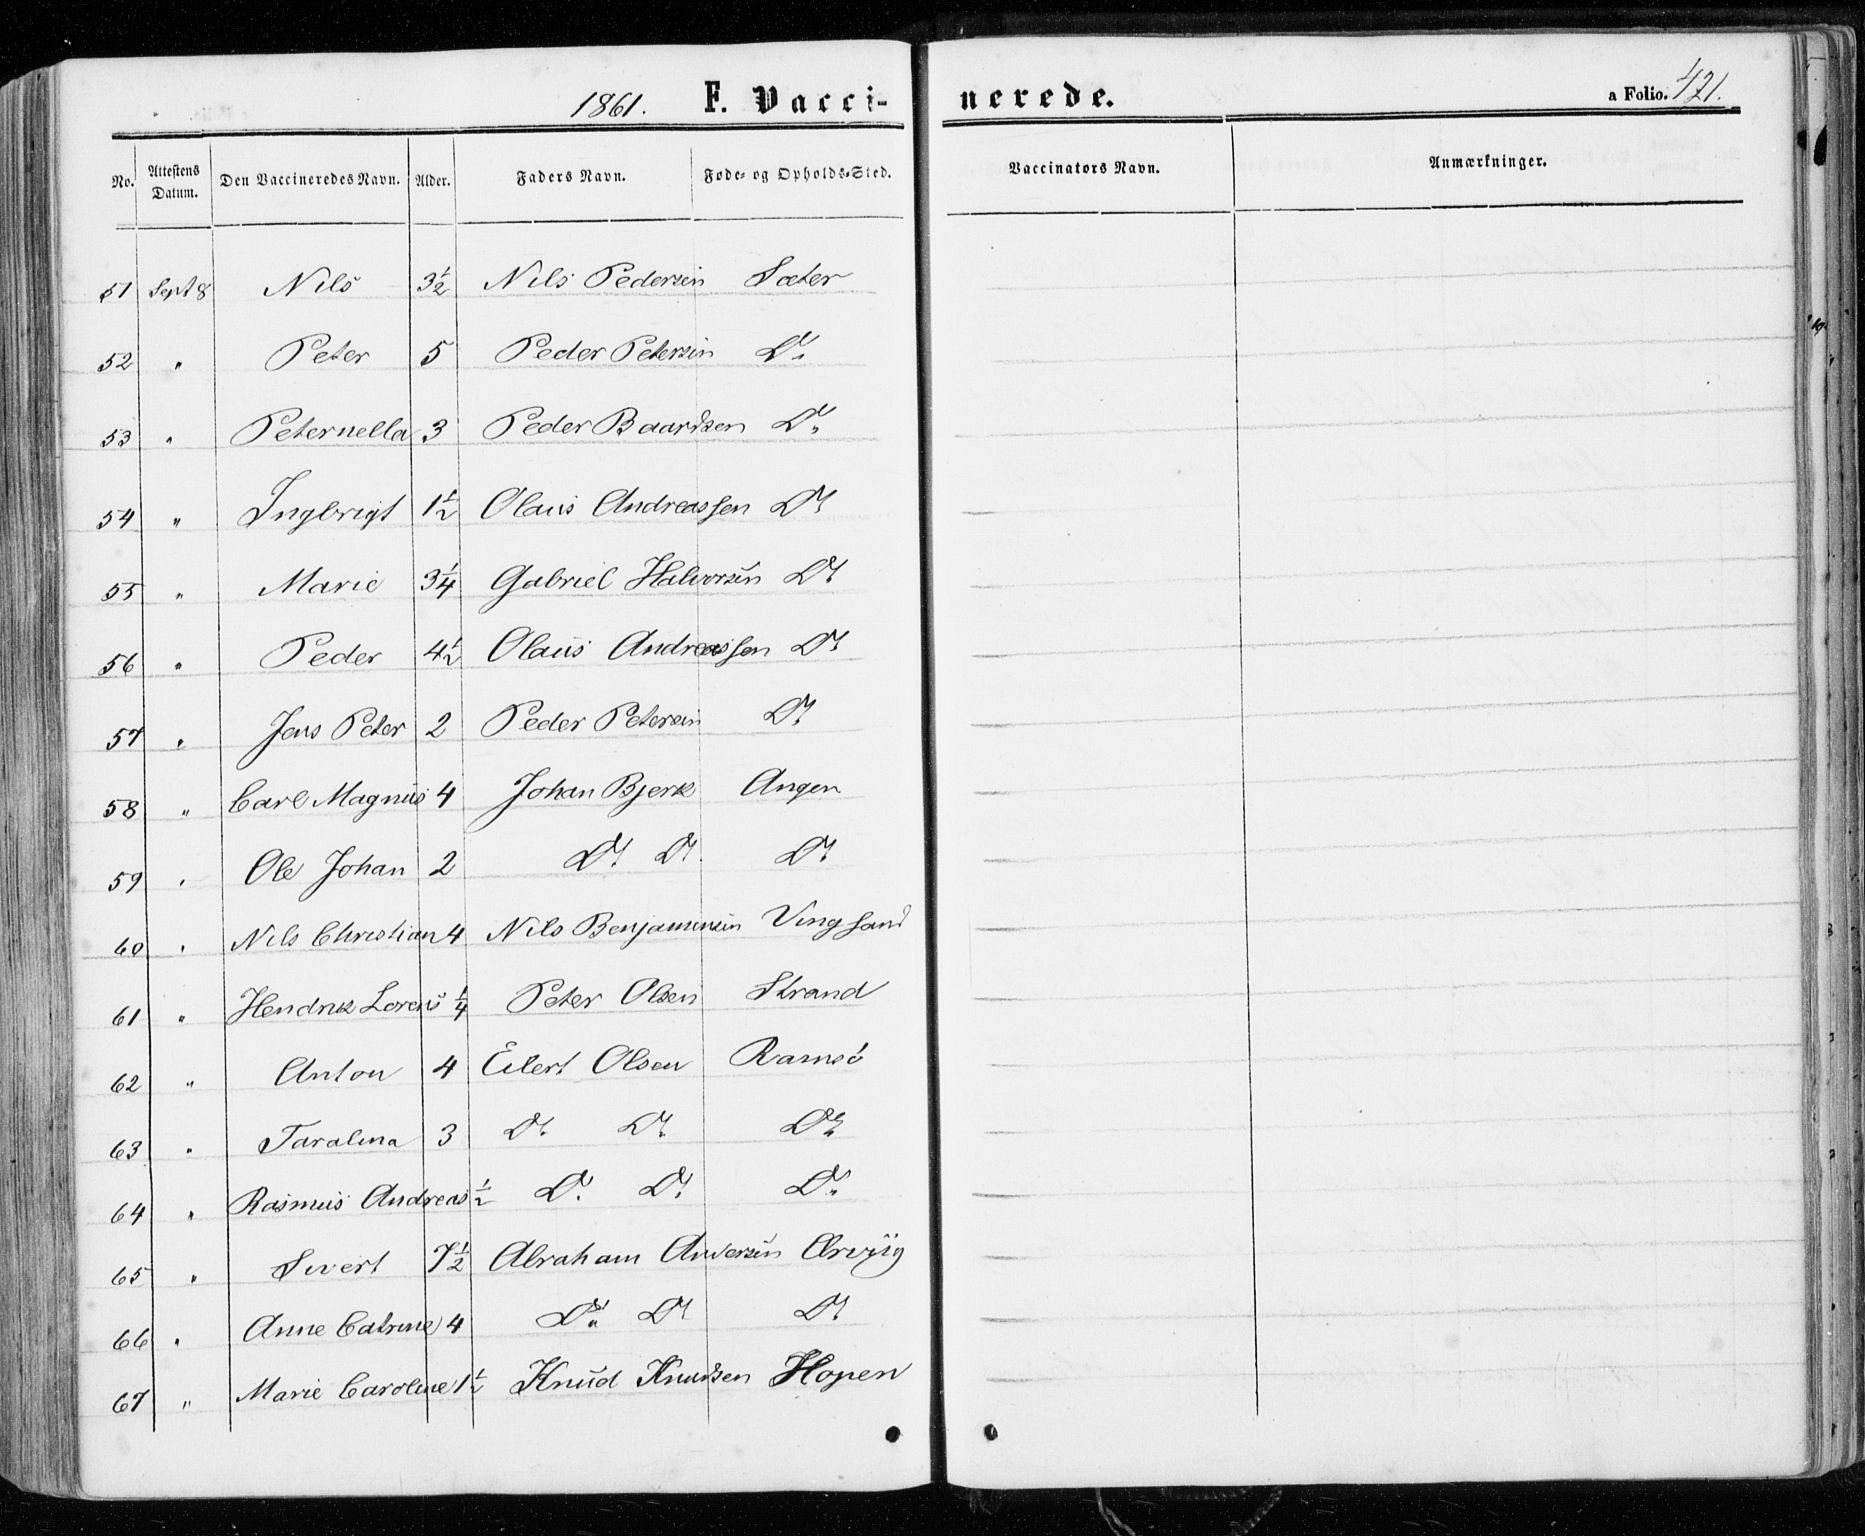 1861. F. Vacci-
nerede. a Folio. 421.
No. Attestens Datum. Den Vaccineredes Navn. Alder. Faders Navn. Føde- og Opholds-Sted. Vaccinators Navn. Anmærkninger.
51 Sept 8 Nils 3½ Nils Pedersen Sæter
52 " Peter 5 Peder Petersen Do
53 " Peternella 3 Peder Baardsen Do
54 " Ingbrigt 1½ Olaus Andreassen Do
55 " Marie 3¼ Gabriel Halvorsen Do
56 " Peder 4½ Olaus Andreassen Do
57 " Jens Peter 2 Peder Petersen Do
58 " Carl Magnus 4 Johan Bjerk Angen
59 " Ole Johan 2 Do Do Do
60 " Nils Christian 4 Nils Benjaminsen Vingsand
61 " Hendrik Lorens ¼ Peter Olsen Strand
62 " Anton 4 Eilert Olsen Ramsö
63 " Taralina 3 Do Do Do
64 " Rasmus Andreas ½ Do Do Do
65 " Sivert 7½ Abraham Andersen
66 " Anne Catrine 4 Do Do Do
67 " Marie Caroline 1½ Knud Knudsen Hopen